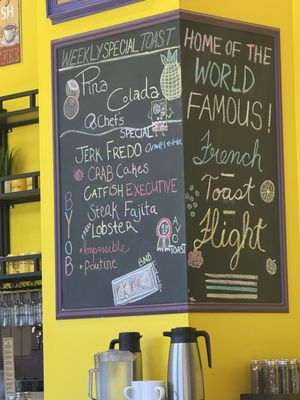 SH
WEEKLY SPECIAL TOAST
Pina
Colada
Chefs
SPECIAL
JERK FREDO Omelette
CRAB Cakes
CATFISH EXECUTIVE
Steak Fajita
Lobster
Impossible
Poutine
BYOB
TOAST
HOME OF THE
WORLD
FAMOUS!
French
Toast
Flight